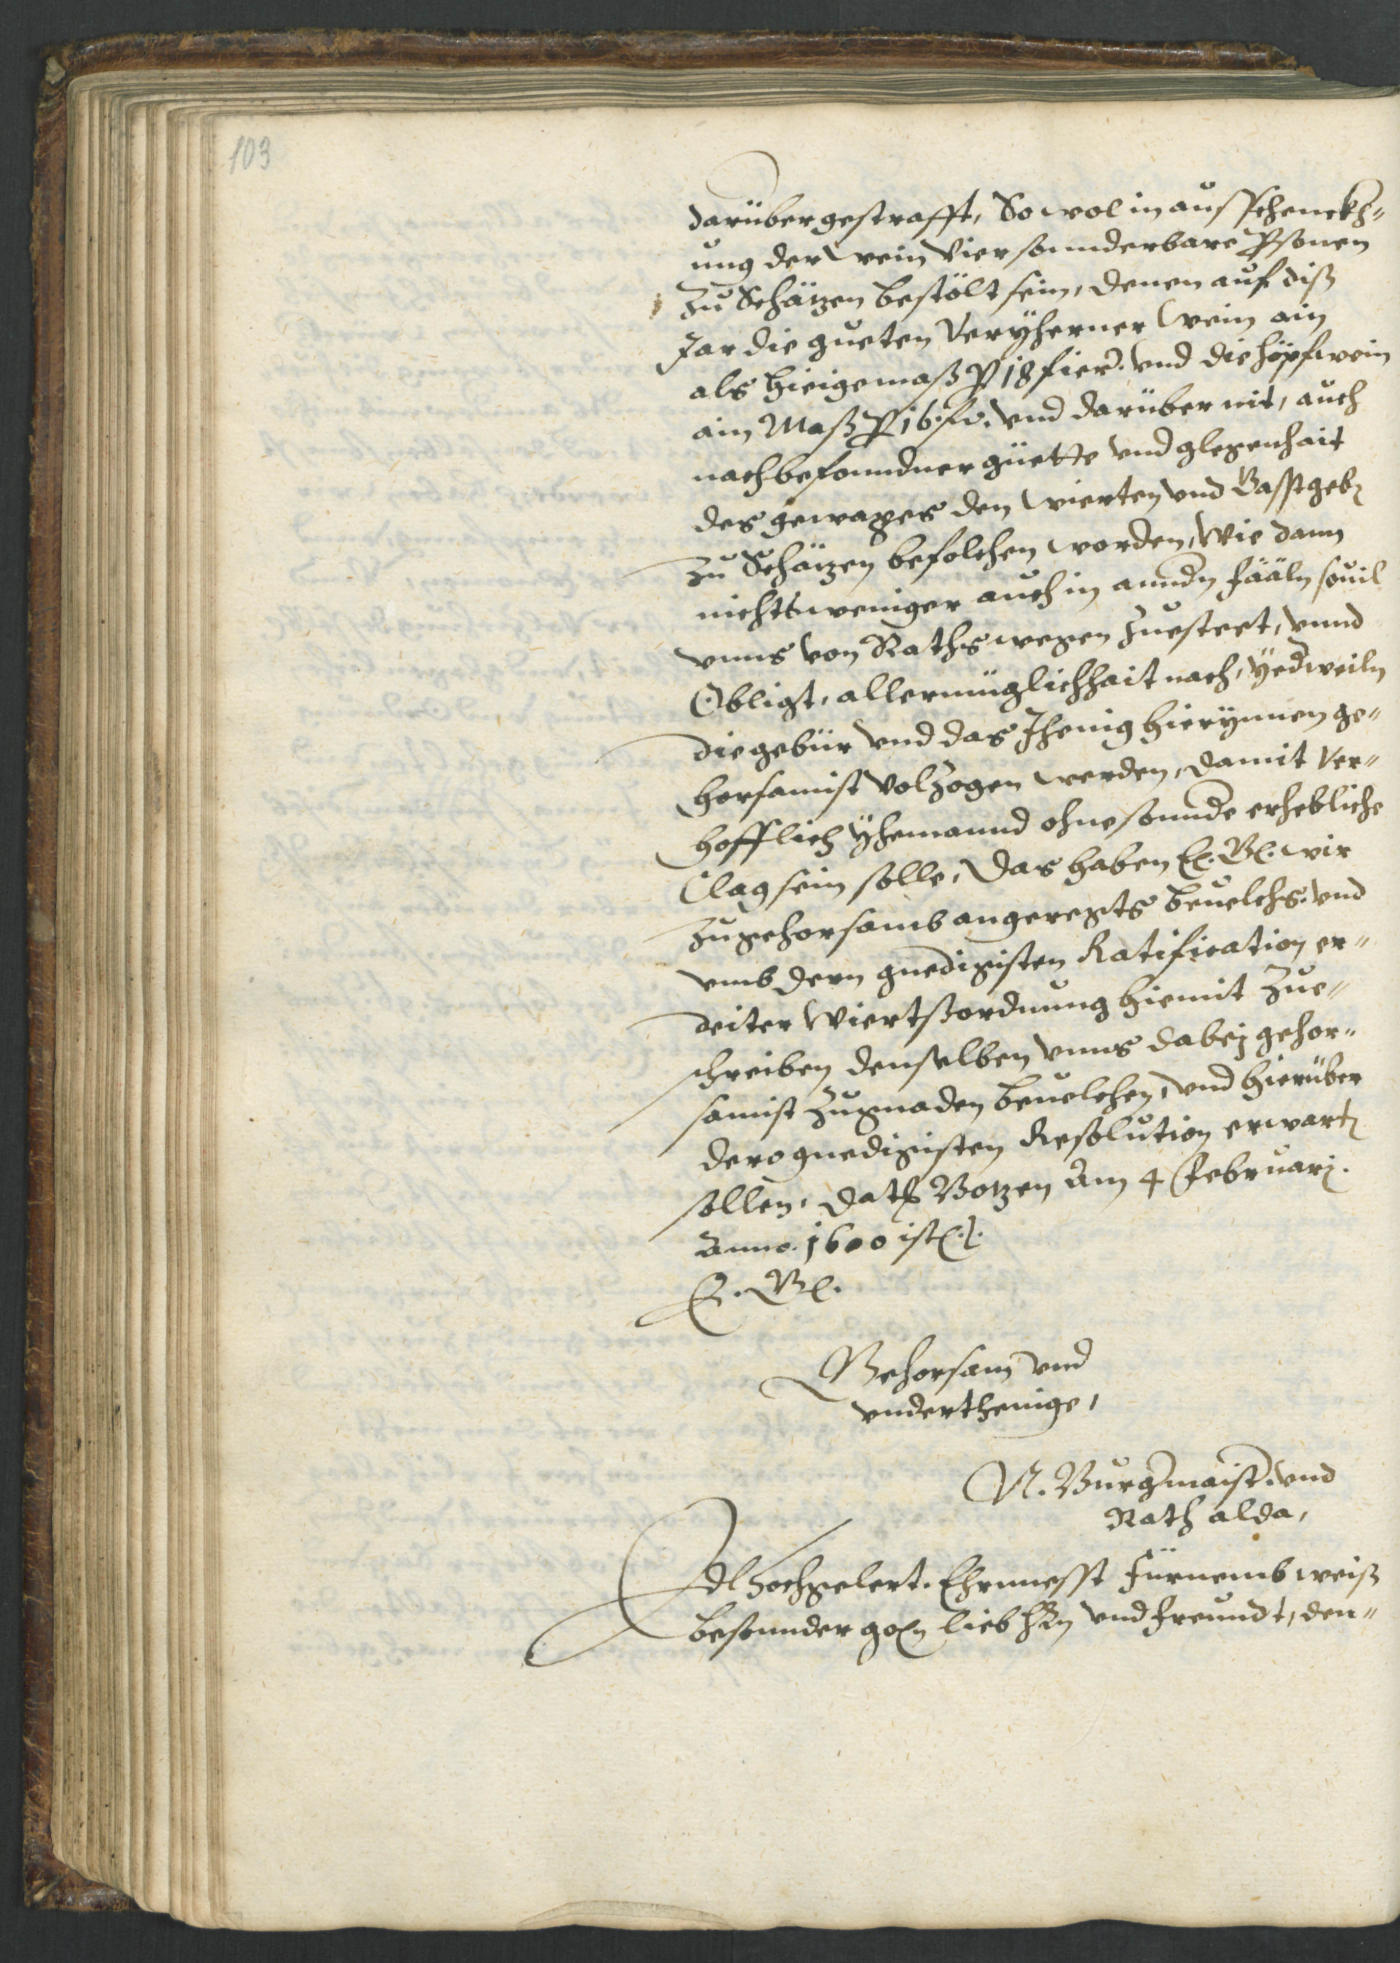 103
darüber gestrafft, So wol in ausschenckh-
ung der wein Vier sonnderbare Personen
zu Schäzen bestölt sein, denen auf diß
Jar die gueten Veryherner wein ain
als hieige maß P 18 fierer. vnd die höpfwein
ain Maß P 16. fr. vnd darüber nit, auch
nach befonndner güette vnd glegenhait
des gewaxes den wierten vnd Gasstgebn
zu Schäzen befolchen worden, Wie dann
nichtsweniger auch in anndn fääln souil
vnns von Raths wegen Zuesteet, vnnd
Obligt, aller müglichhait nach, yedweiln
die gebür vnd das Jhenig hierynnen ge-
horsamist Volzogen werden, damit Ver-
hofflich yhemannd ohne sonnde erhebliche
Clag sein solle, Das haben E. G. wir
zu gehorsamb angeregts beuelchs. vnd
vmb dern gnedigisten Ratification er-
deiter Wiertßordnung hiemit Zue-
schreiben denselben vnns dabej gehor-
samist zugnaden beuelchen, vnd hierüber
dero gnedigisten Resolution erwartn
sollen, Dats Botzen Am 4 Februarj.
Anno. 1600 ist.
E. G.
Gehorsam vnd
vnderthenige,
N. Burgmaister. vnd
Rath alda,
Edl Hochgelert. Ehrnuesst Fürnemb weiß
besonnder gon lieb Hrn vnd freundt, den-